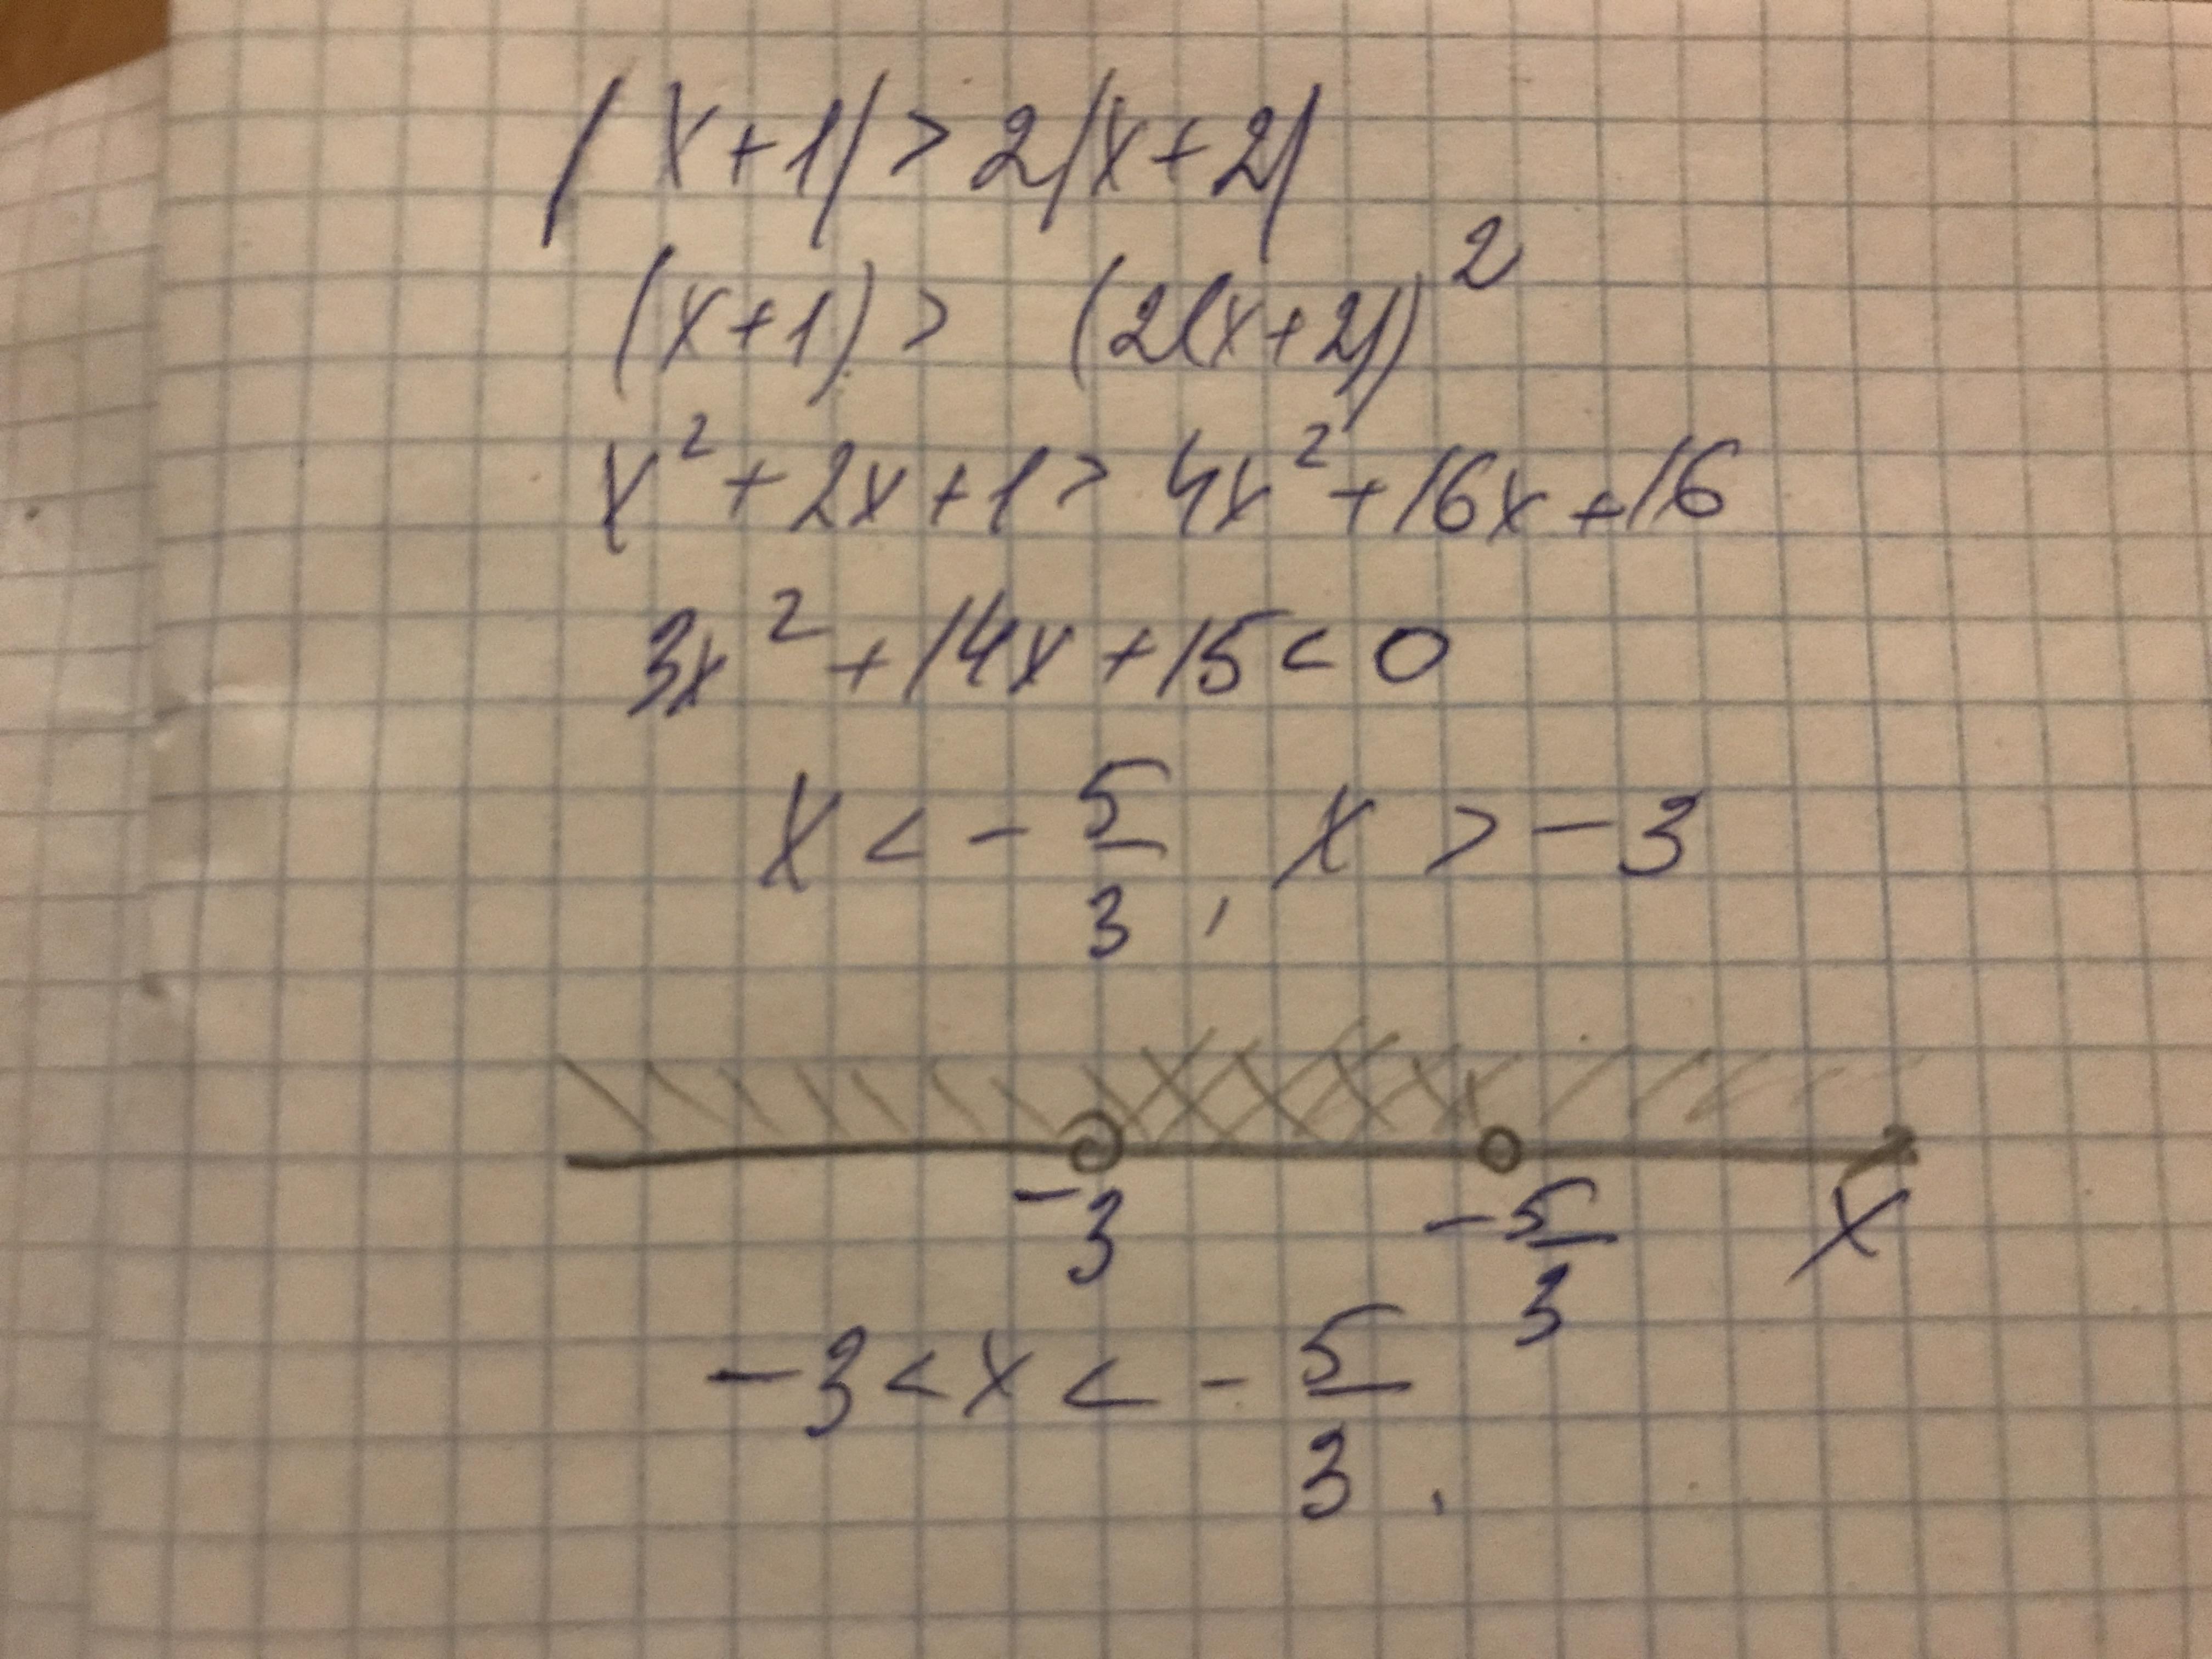 |x+1|>2|x+2|
(x+1)> (2(x+2))²
x²+2x+1>4x²+16x+16
3x²+14x+15<0
x<-5/3, x>-3
-3 -5/3 x
-3<x<-5/3.